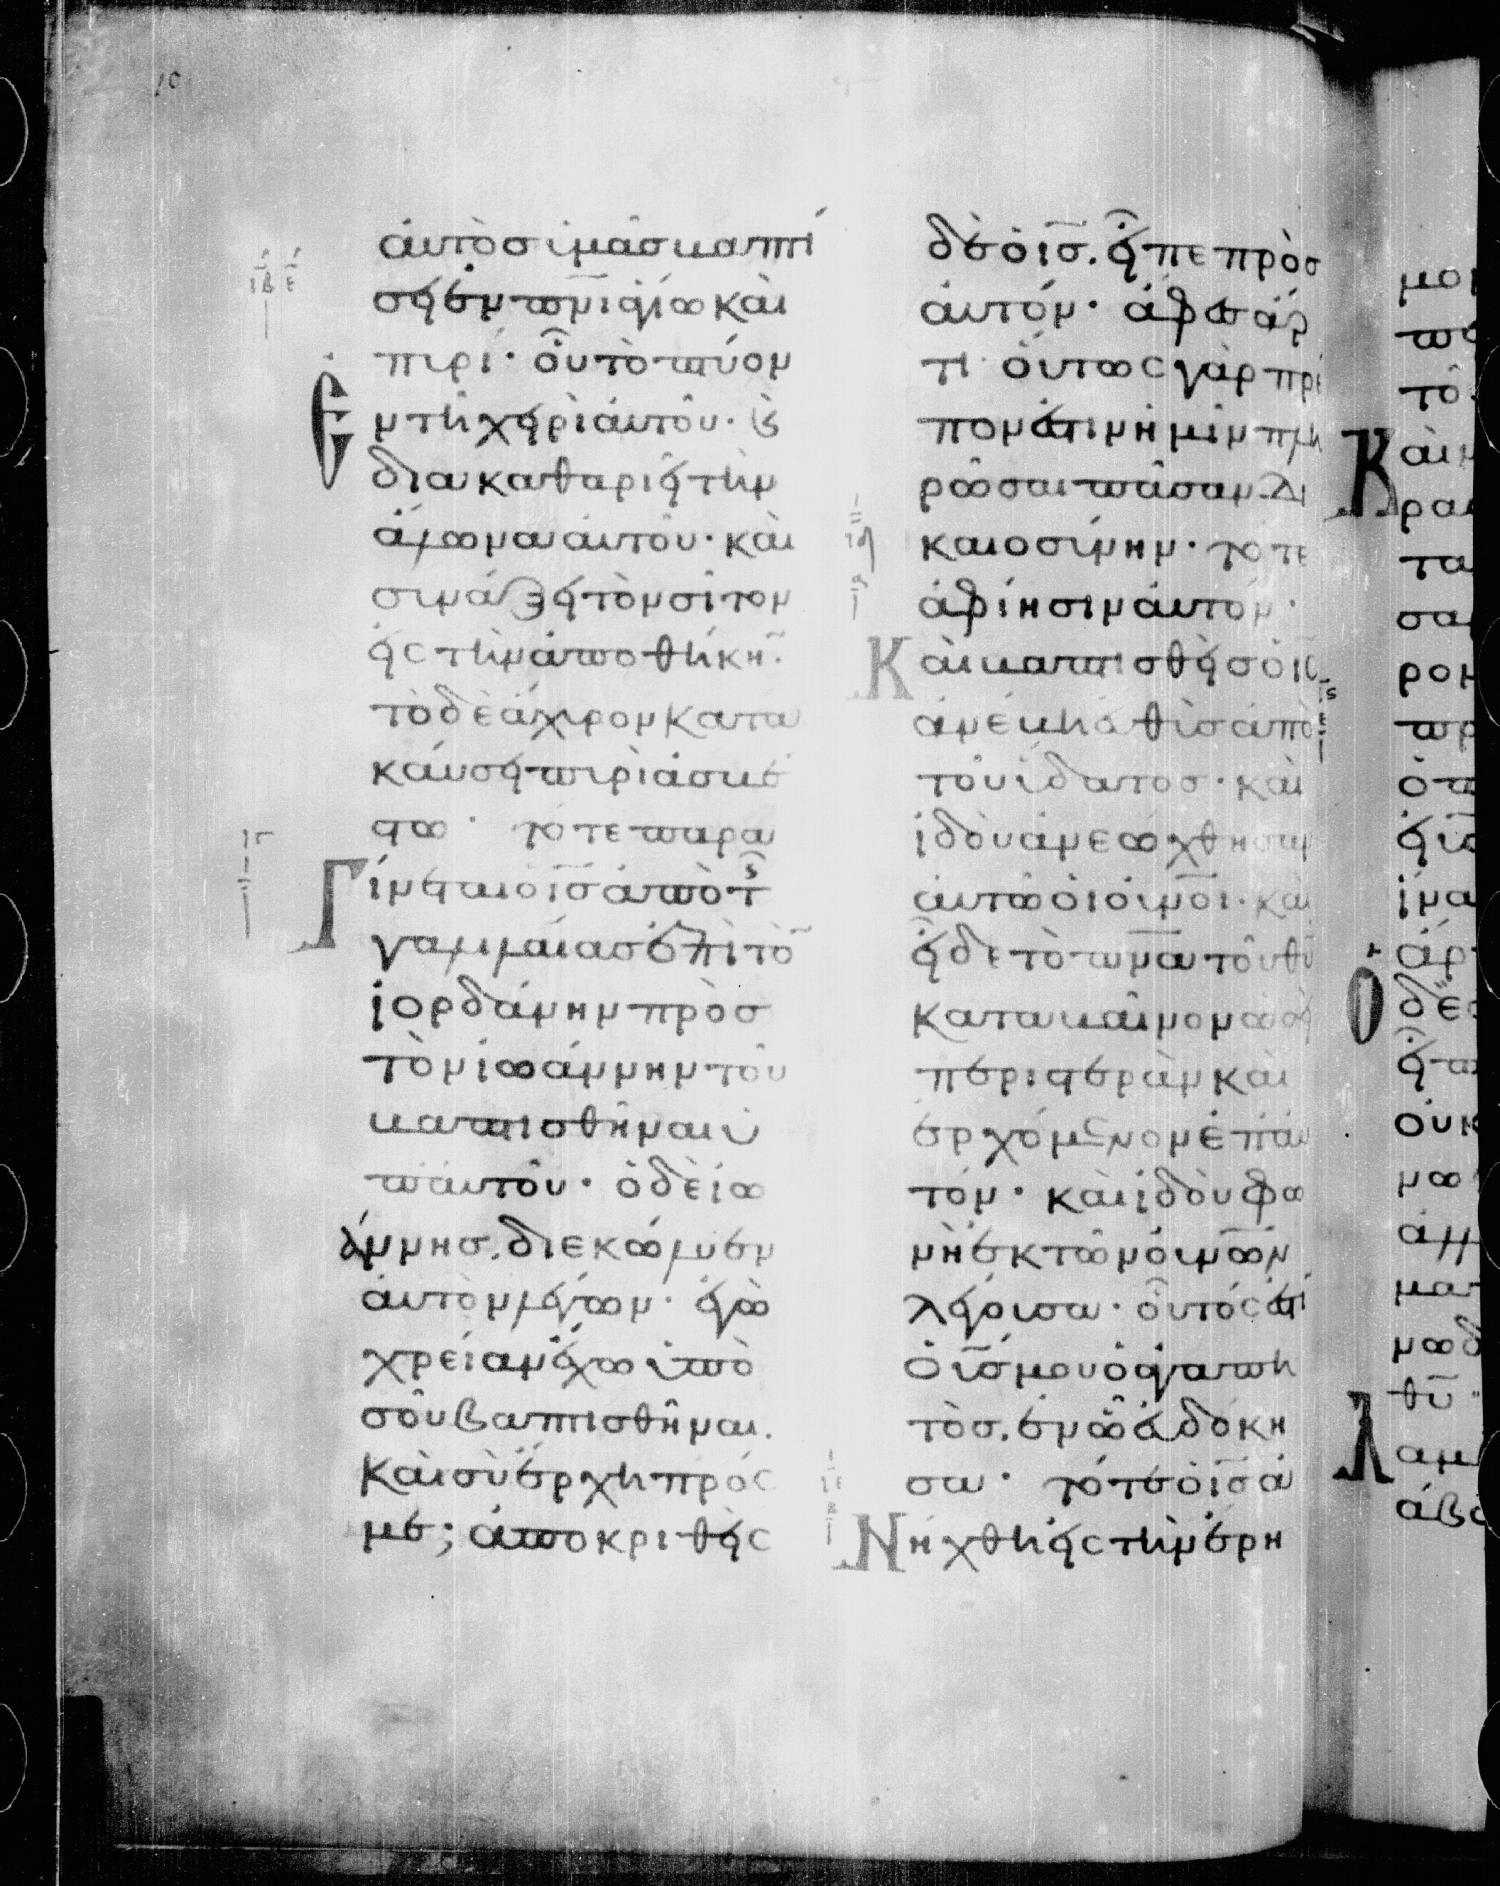 αὐτὸσ ὑμᾶσ βαπτί
σει ἐν πνι ἁγίω καὶ
πυρί· οὗ τὸ πτύον
ἐν τῆ χειρὶ αὐτοῦ· καὶ
διακαθαριεῖ τὴν
ἅλωνα αὐτοῦ· καὶ
συνάξει τὸν σῖτον
εἰς τὴν ἀποθήκην·
τὸ δὲ ἄχυρον κατα
καύσει πυρὶ ἀσβέ
στω· τότε παρα
Γίνεται ὁ ισ ἀπὸ τῆς
γαλιλαίασ ἐπὶ τὸν
ἰορδάνην πρὸσ
τὸν ἰωάννην τοῦ
βαπτισθῆναι ὑ
π' αὐτοῦ· ὁ δὲ ἰω
άννησ. διεκώλυεν
αὐτὸν λέγων· ἐγὼ
χρείαν ἔχω ὑπὸ
σοῦ βαπτισθῆναι.
Καὶ σὺ ἔρχη πρός
με; ἀποκριθεὶς
δὲ ὁ ισ. εἶπε πρὸσ
αὐτόν· ἄφεσ ἄρ
τι· οὕτως γὰρ πρέ
πον ἐστὶν ἡμῖν πλη
ρῶσαι πᾶσαν δι
καιοσύνην· τότε
ἀφίησιν αὐτόν·
Καὶ βαπτισθεὶσ ὁ ισ
ἀνέβη εὐθὺσ ἀπὸ
τοῦ ὕδατοσ· καὶ
ἰδοὺ ἀνεώχθησαν
αὐτῶ οἱ οὐνοι· καὶ
εἶδε τὸ πνα τοῦ θυ
καταβαῖνον ὡσεὶ
περιστερὰν καὶ
ἐρχόμενον ἐπ' αὐ
τόν· καὶ ἰδοὺ φω
νὴ ἐκ τῶν οὐνῶν
λέγουσα· οὗτός ἐστι
ὁ υσ μου ὁ ἀγαπη
τὸσ. ἐν ὧ εὐδόκη
σα· τότε ὁ ισ ἀ
Νήχθη εἰς τὴν ἔρη